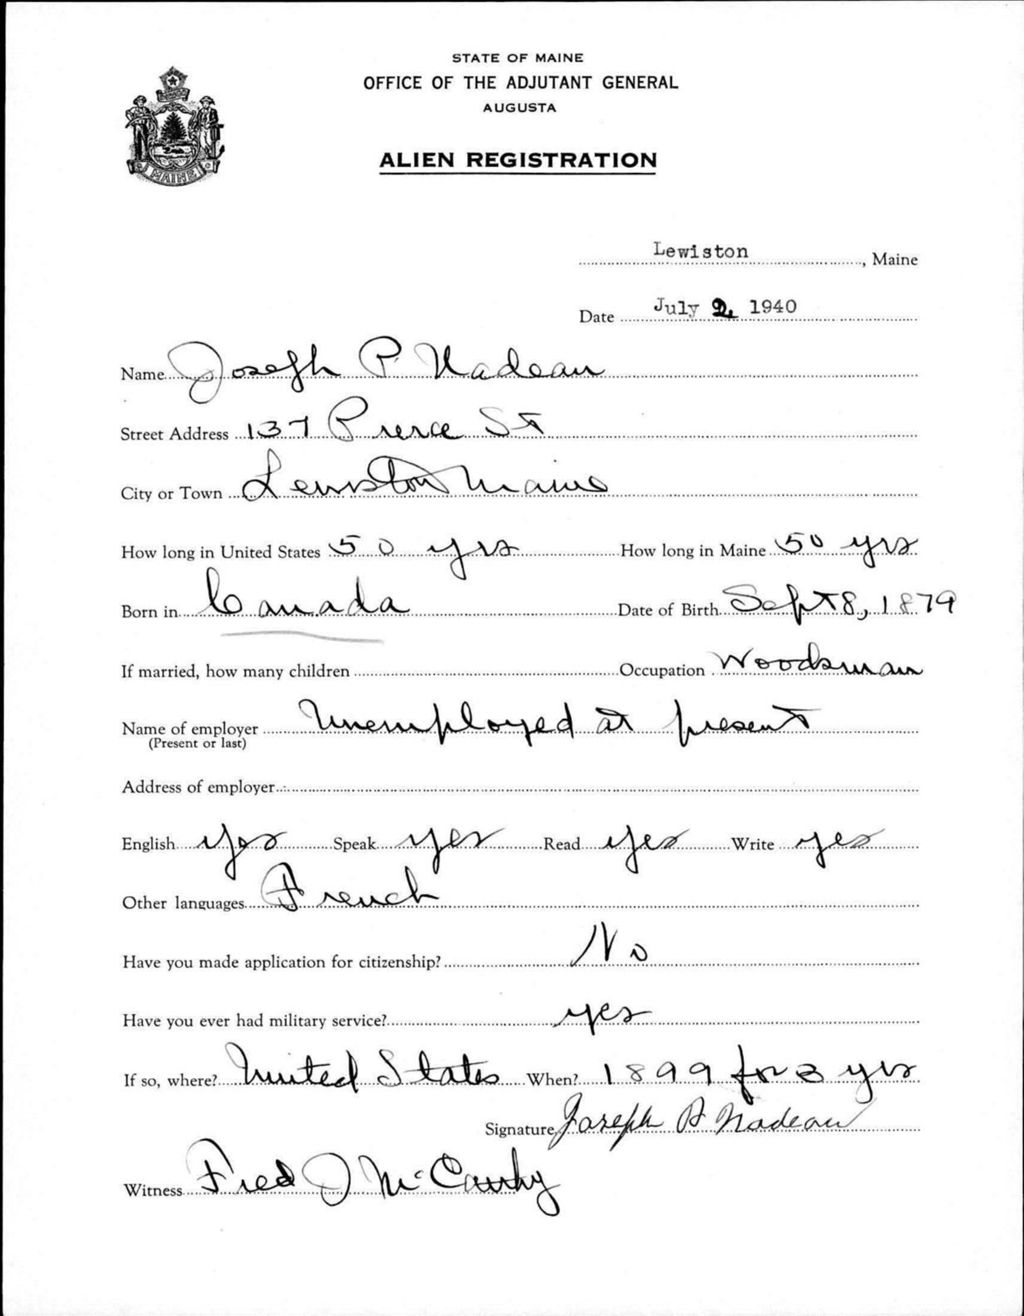 STATE OF MAINE
OFFICE OF THE ADJUTANT GENERAL
AUGUSTA
ALIEN REGISTRATION
MAINE
Lewiston, Maine
Date July 2, 1940
Name Joseph P. Nadeau
Street Address 137 Pierce St
City or Town Lewiston Maine
How long in United States 50 yrs How long in Maine 50 yrs
Born in Canada Date of Birth Sept 8, 1879
If married, how many children Occupation Woodsman
Name of employer Unemployed at present
(Present or last)
Address of employer
English yes Speak yes Read yes Write yes
Other languages French
Have you made application for citizenship? No
Have you ever had military service? yes
If so, where? United States When? 1899 for 3 yrs
Signature Joseph P Nadeau
Witness Fred J McCarthy